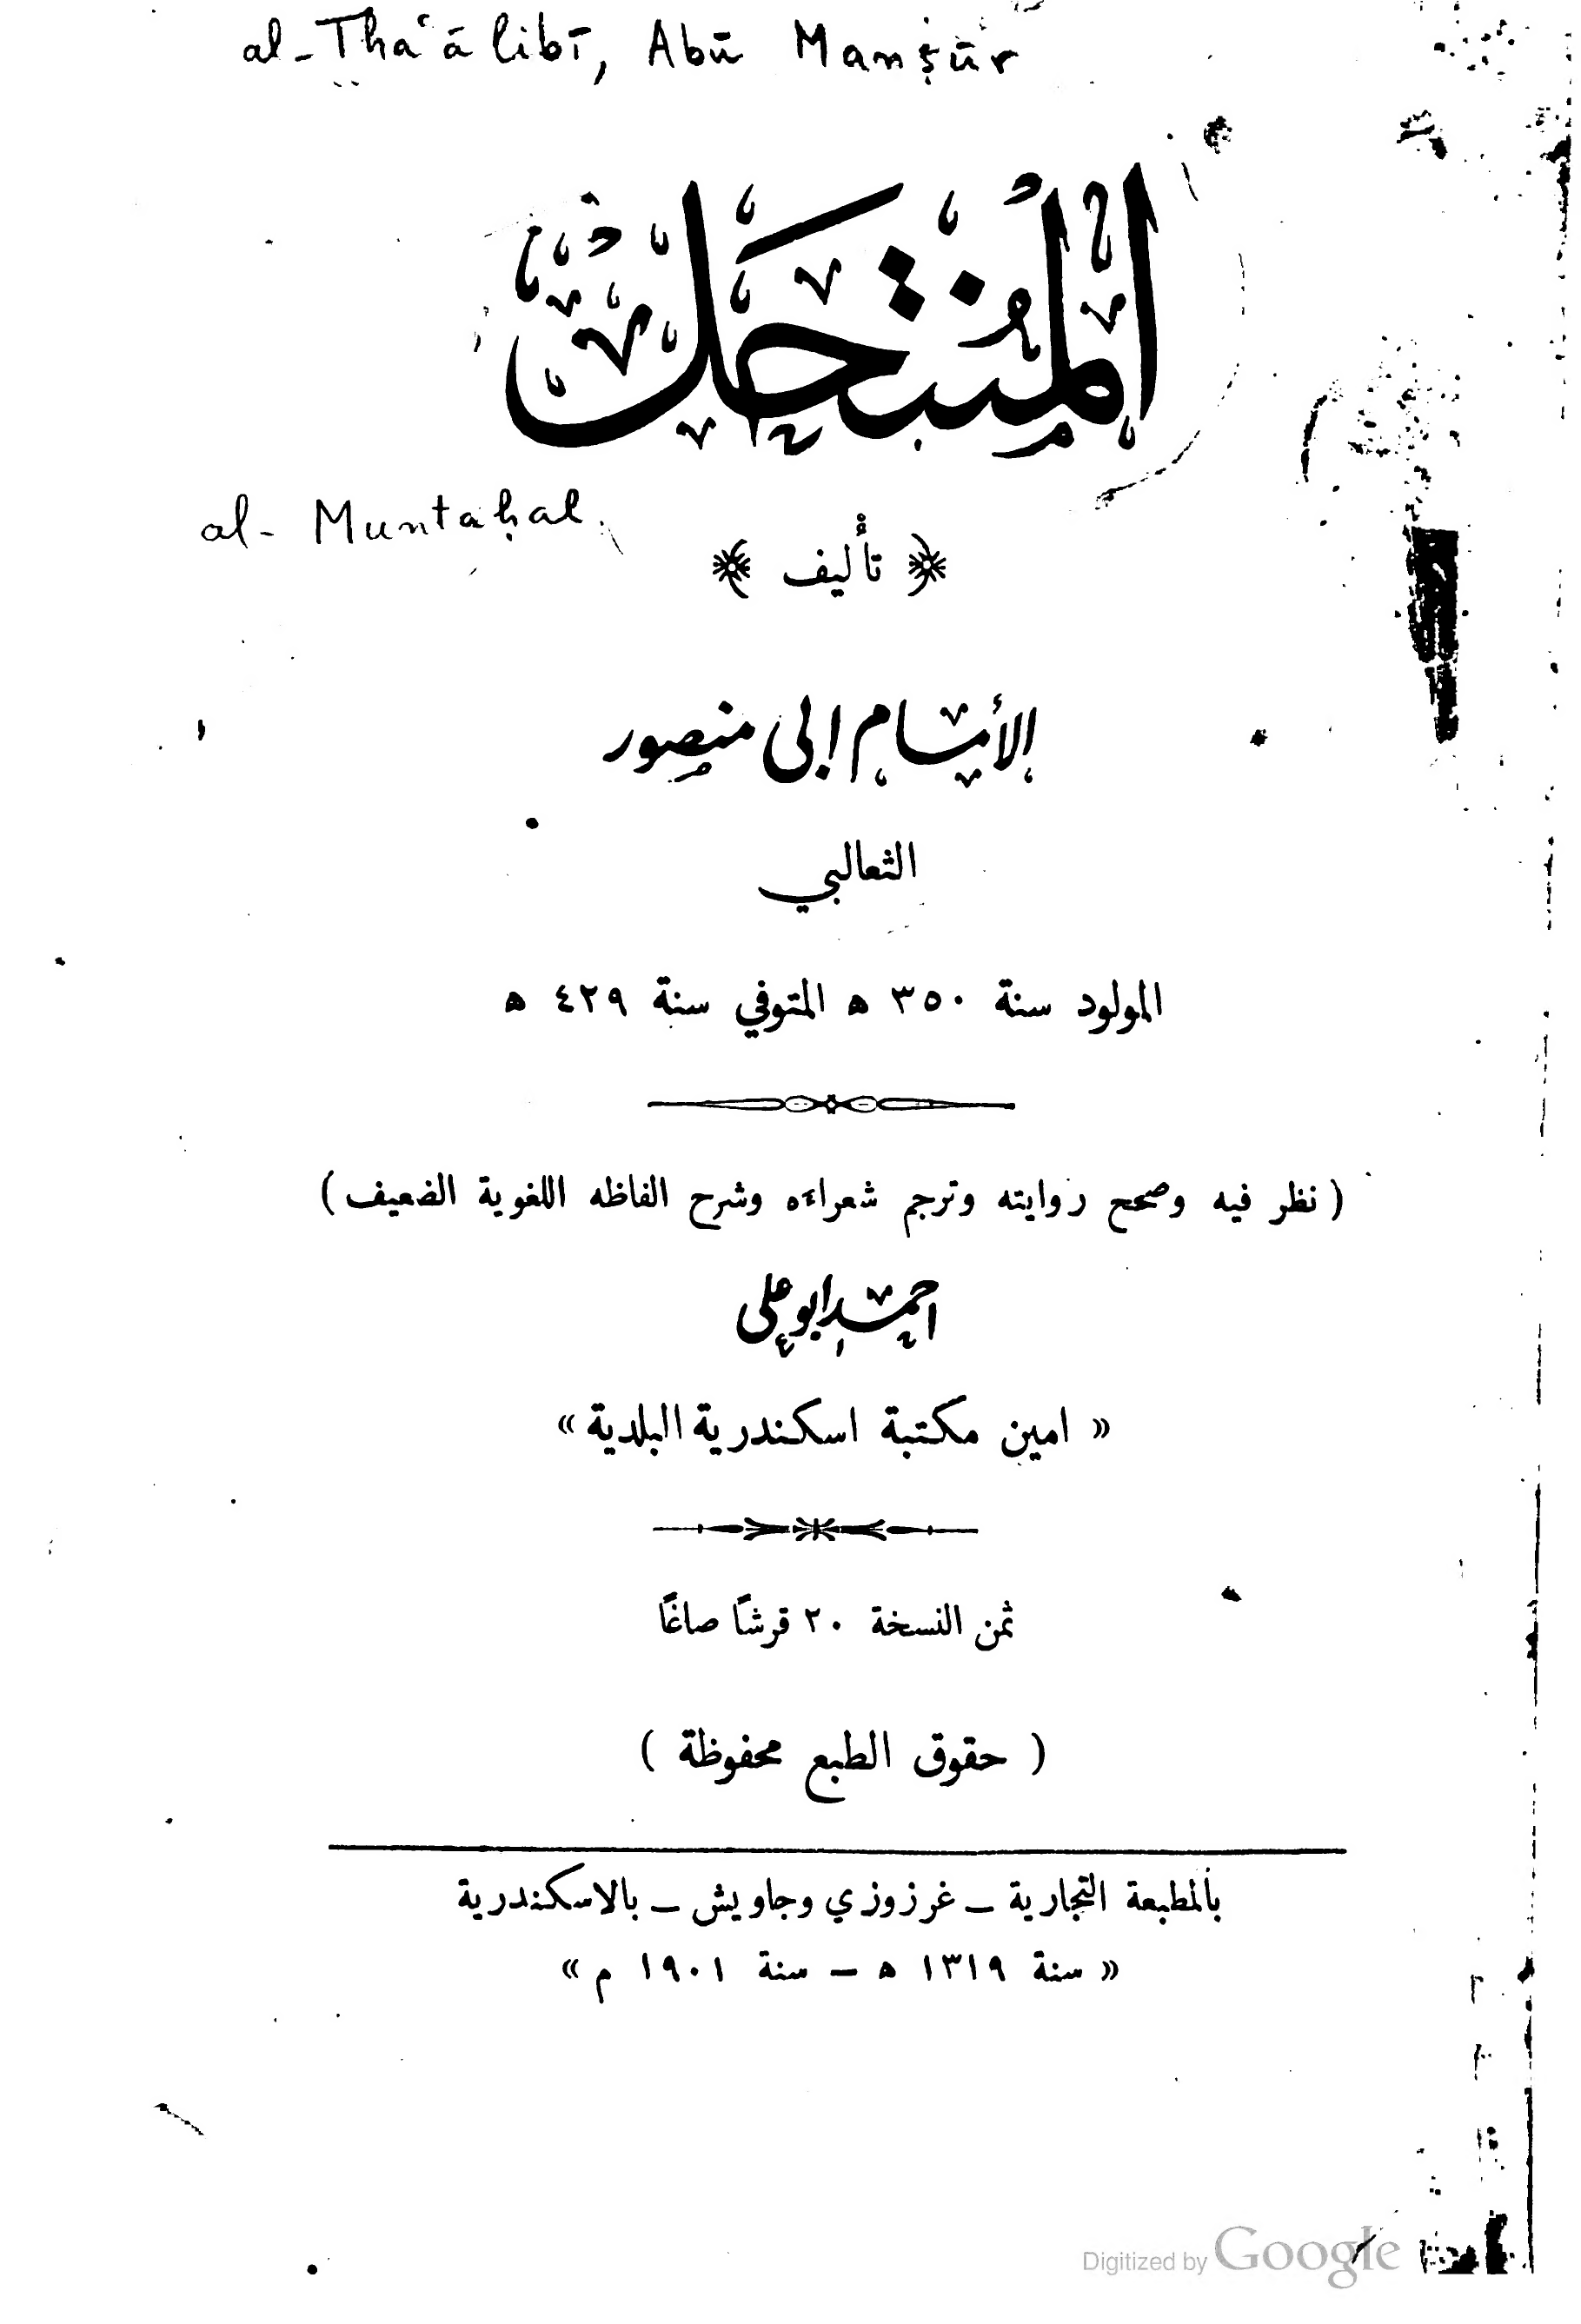 al-Thaʿālibī, Abū Manṣūr
المُنْتَحَل
al-Muntaḥal
﴿ تأليف ﴾
الأمام ابى منصور
الثعالبي
المولود سنة ٣٥٠ ه المتوفي سنة ٤٢٩ ه
( نظر فيه وصحح روايته وترجم شعراءه وشرح الفاظه اللغوية الضعيف )
احمد ابو على
« امين مكتبة اسكندرية البلدية »
ثمن النسخة ٢٠ قرشًا صاغًا
( حقوق الطبع محفوظة )
بالمطبعة التجارية – غرزوزي وجاويش – بالاسكندرية
« سنة ١٣١٩ ه – سنة ١٩٠١ م »
Digitized by Google